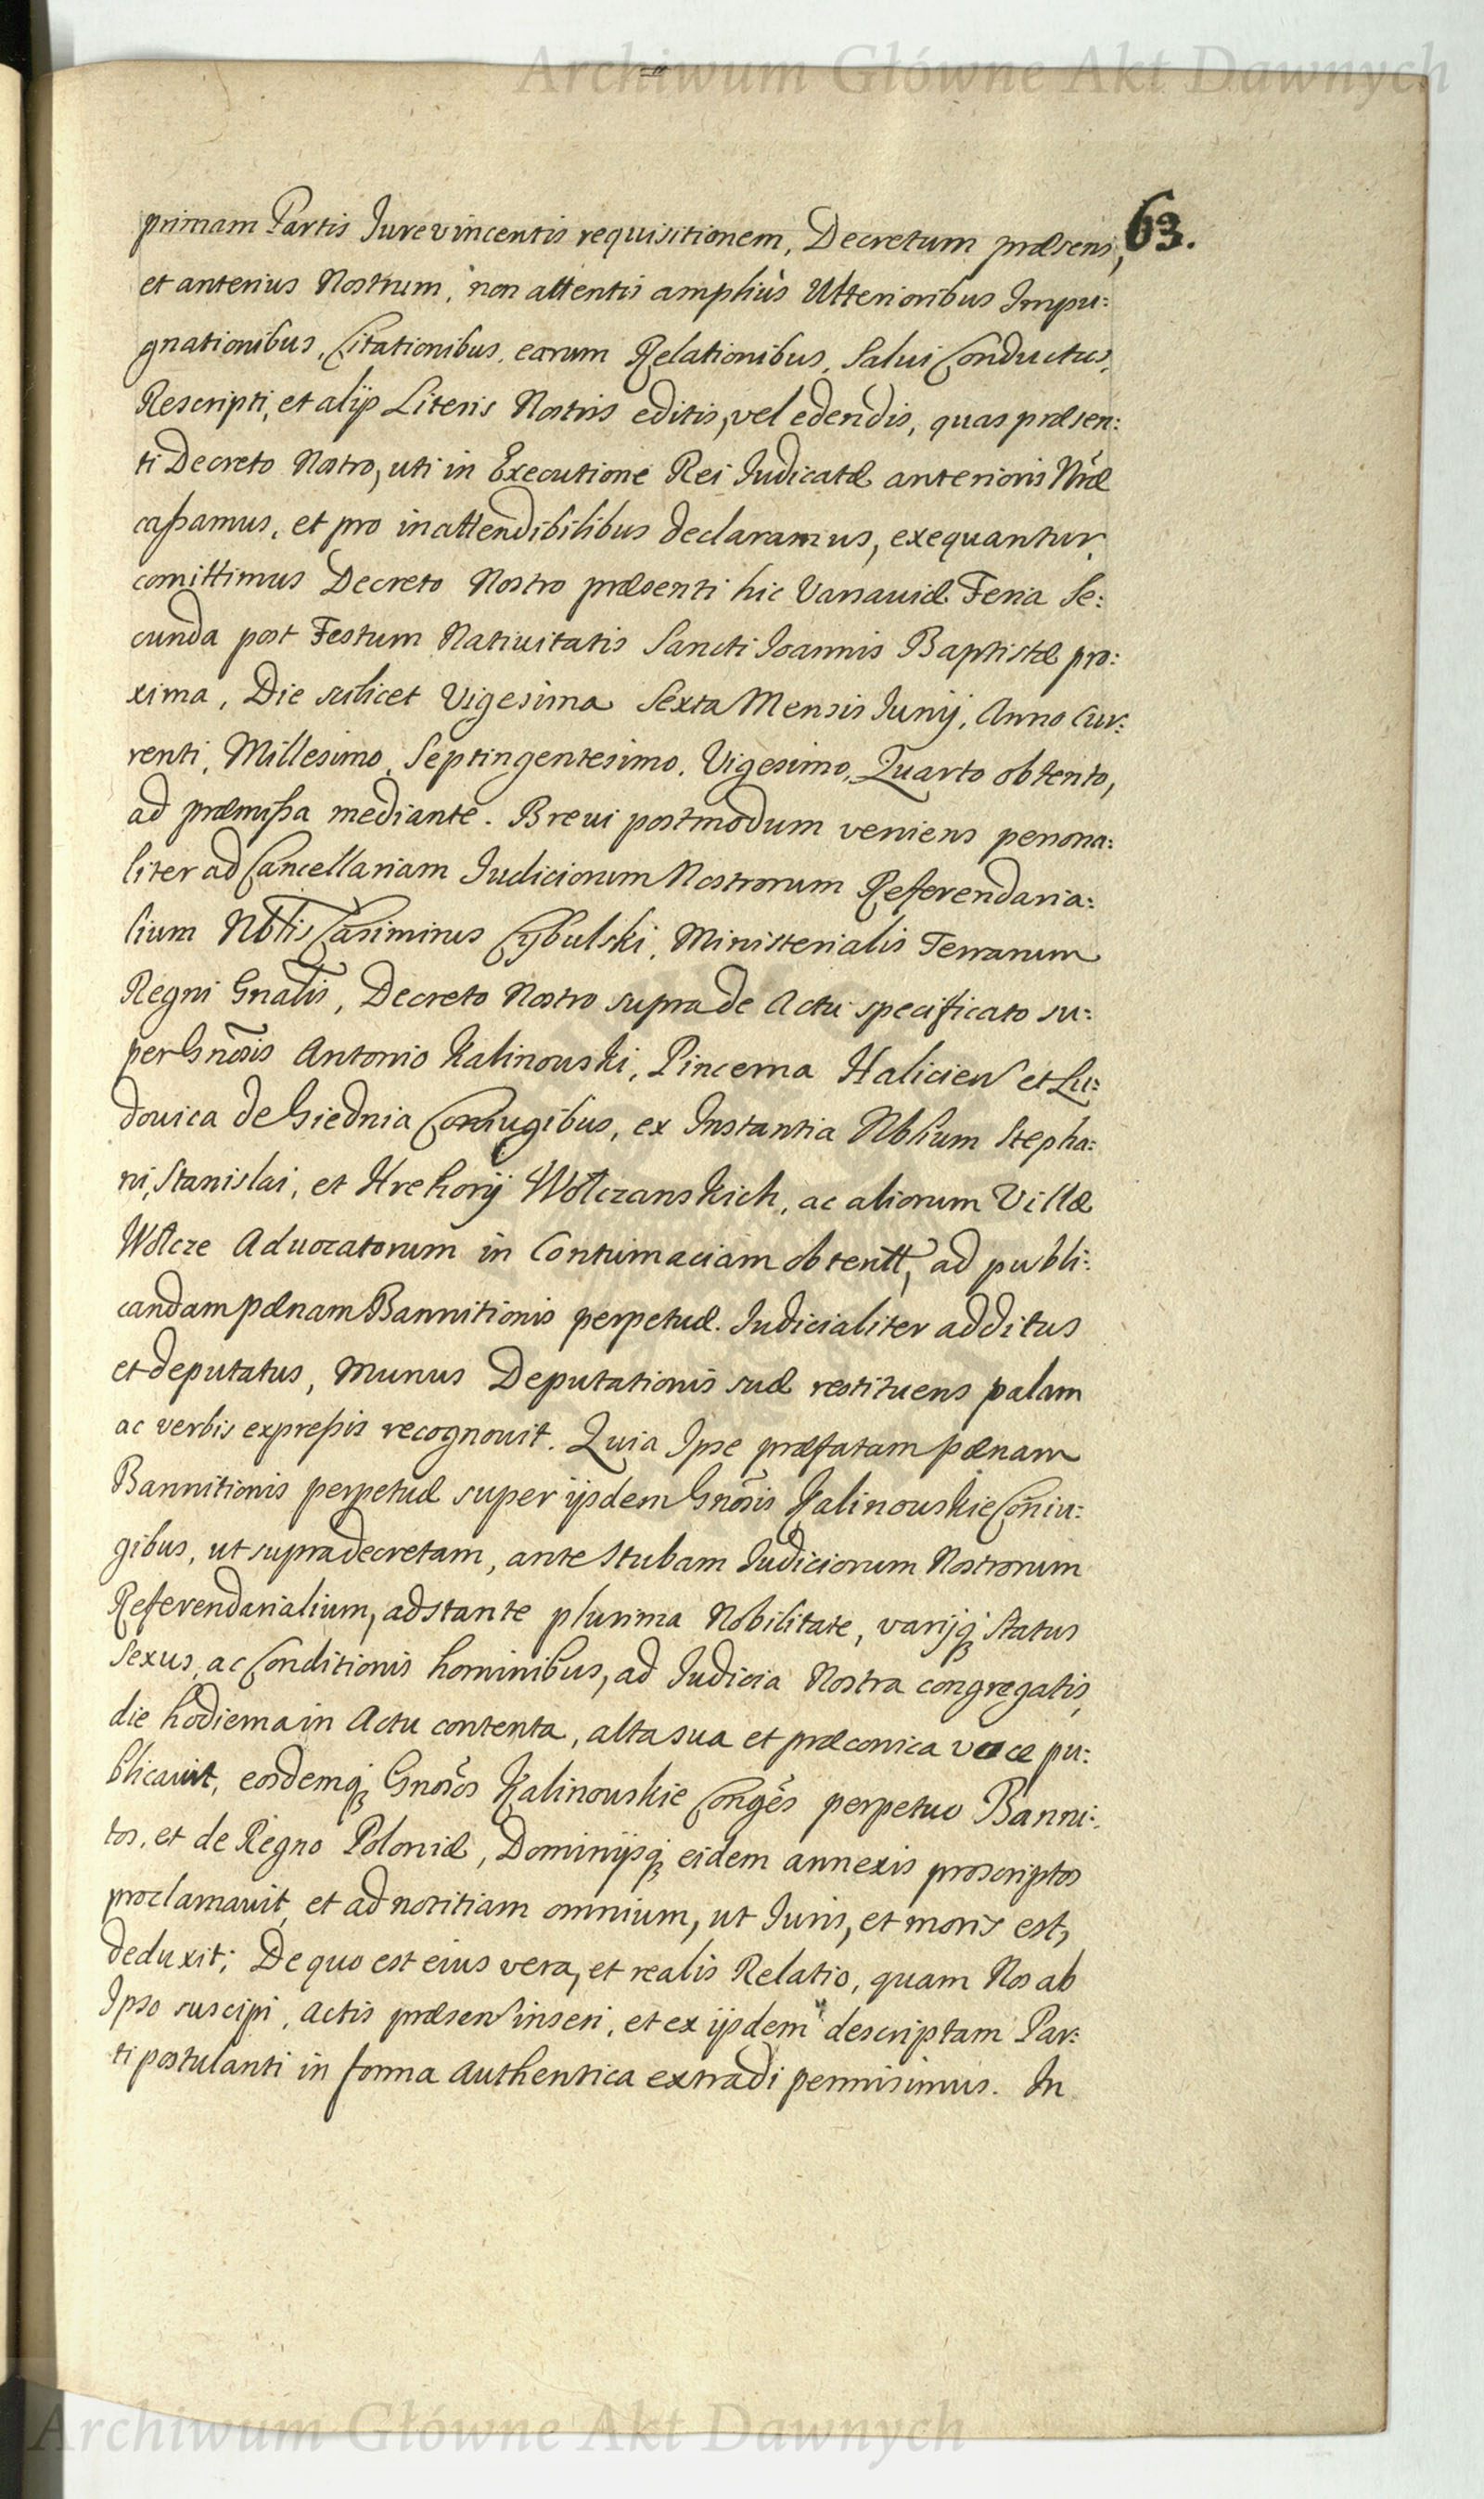 Archiwum Główne Akt Dawnych
63.
primam Partis Jurevincentis requisitionem, Decretum præsens,
et anterius Nostrum, non attentis ampliùs Ulterioribus Impu:
gnationibus, Citationibus, earum Relationibus, Salui Conductus,
Rescripti, et alijs Literis Nostris editis, vel edendis, quas præsen:
ti Decreto Nostro, uti in Executione Rei Judicatæ anterioris Nræ
caßamus, et pro inattendibilibus declaramus, exequantur,
comittimus Decreto Nostro præsenti hic Varsauiæ Feria Se:
cunda post Festum Natiuitatis Sancti Joannis Baptistæ pro:
xima, Die scilicet Vigesima Sexta Mensis Junij, Anno Cur:
renti, Millesimo, Septingentesimo, Vigesimo, Quarto obtento,
ad præmißa mediante. Breui postmodum veniens persona:
liter ad Cancellariam Judiciorum Nostrorum Referendaria:
lium Nbtlis Casimirus Cybulski, Ministerialis Terrarum
Regni Gnalis, Decreto Nostro supra de Actu specificato su:
per Gnosis Antonio Kalinouski, Pincerna Halicien et Lu:
douica de Giednia Coniugibus, ex Instantia Nblium Stepha:
ni, Stanislai, et Hrehorij Wołczanskich, ac aliorum Villæ
Wołcze Aduocatorum in Contumaciam obtentt, ad publi:
candam pœnam Bannitionis perpetuæ. Judicialiter additus
et deputatus, Munus Deputationis suæ restituens palam
ac verbis expreßis recognouit. Quia Ipse præfatam pœnam
Bannitionis perpetuæ super ijsdem Gnosis Kalinouskie Coniu:
gibus, ut supra decretam, ante Stubam Judiciorum Nostrorum
Referendarialium, adstante plurima Nobilitate, varijq; Status
Sexus, ac Conditionis hominibus, ad Judicia Nostra congregatis,
die hodierna in Actu contenta, alta sua et præconica voce pu:
blicauit, eosdemq; Gnosos Kalinouskie Conges perpetuo Banni:
tos, et de Regno Poloniæ, Dominijsq; eidem annexis proscriptos
proclamauit, et ad notitiam omnium, ut Juris, et moris est,
deduxit; De quo est eius vera, et realis Relatio, quam Nos ab
Ipso suscipi, actis præsen inseri, et ex ijsdem descriptam Par:
ti postulanti in forma Authentica extradi permisimus. In
Archiwum Główne Akt Dawnych